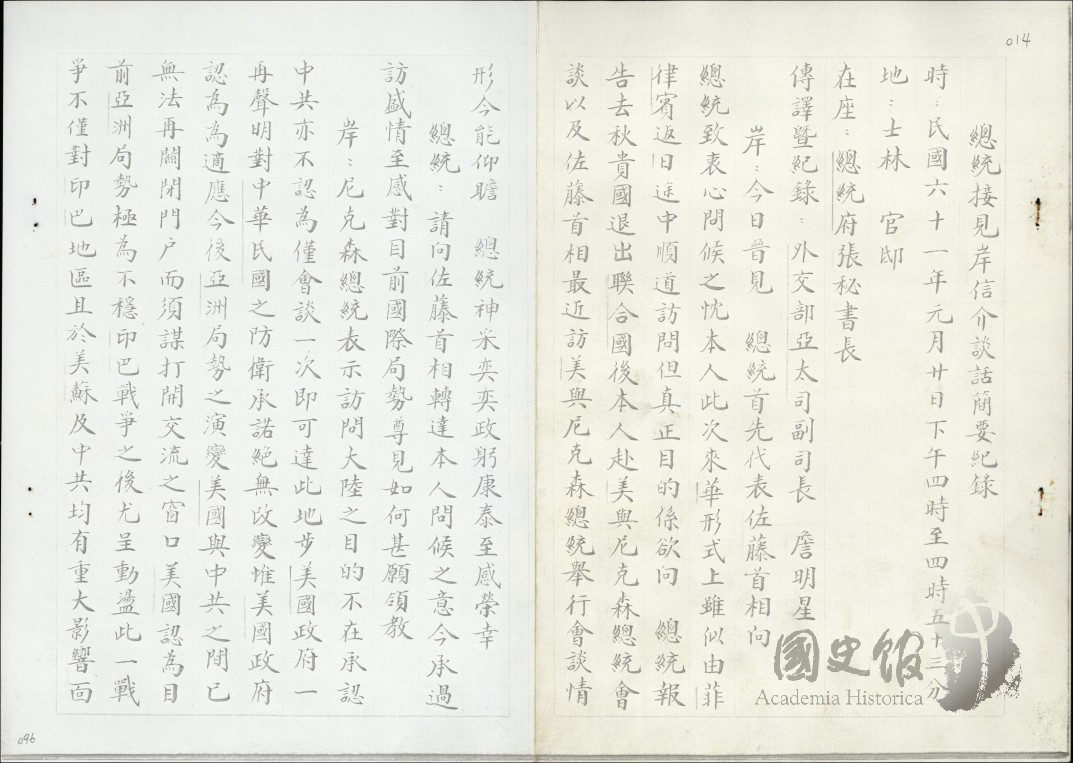 014
總統接見岸信介談話簡要紀錄
時：民國六十一年元月廿日下午四時至四時五十三分
地：士林 官邸
在座：總統府張秘書長
傳譯暨紀錄：外交部亞太司副司長 詹明星
岸：今日晉見 總統首先代表佐藤首相向
總統致衷心問候之忱本人此次來華形式上雖似由菲
律賓返日途中順道訪問但真正目的係欲向 總統報
告去秋貴國退出聯合國後本人赴美與尼克森總統會
談以及佐藤首相最近訪美與尼克森總統舉行會談情
形今能仰瞻 總統神采奕奕政躬康泰至感榮幸
總統：請向佐藤首相轉達本人問候之意今承過
訪盛情至感對目前國際局勢尊見如何甚願領教
岸：尼克森總統表示訪問大陸之目的不在承認
中共亦不認為僅會談一次即可達此地步美國政府一
再聲明對中華民國之防衛承諾絕無改變惟美國政府
認為為適應今後亞洲局勢之演變美國與中共之間已
無法再關閉門戶而須謀打開交流之窗口美國認為目
前亞洲局勢極為不穩印巴戰爭之後尤呈動盪此一戰
爭不僅對印巴地區且於美蘇及中共均有重大影響而
096
國史館
Academia Historica